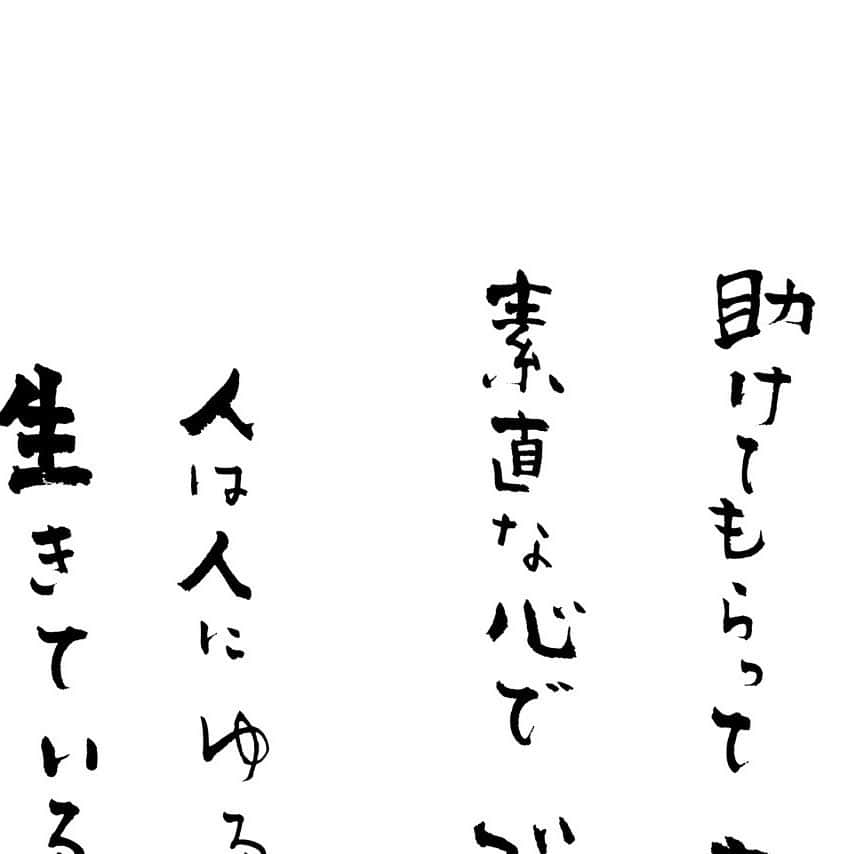 助けてもらって
素直な心で
人は人にゆる
生きている